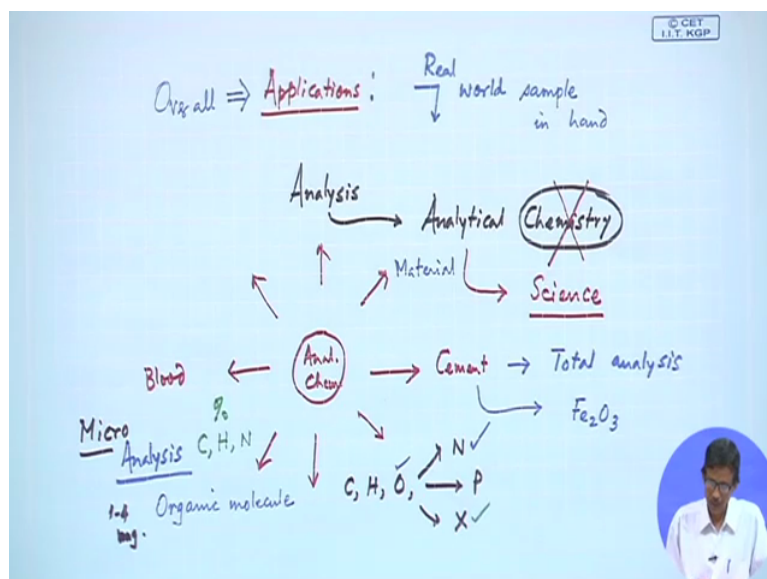 © CET
I.I.T. KGP
Overall ⇒ Applications:
Real
world sample
in hand
Analysis
Analytical Chemistry
Material
Science
Anal.
Chem
Blood
Cement → Total analysis
Fe₂O₃
%
C, H, N
Micro
Analysis
Organic molecule
1-4
mg.
C, H, O,
N ✓
P
X ✓